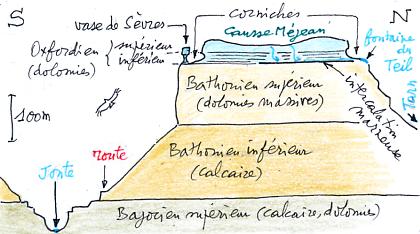 S
vase de Sèvres
corniches
N
Oxfordien { supérieur
inférieur
(dolomies)
Causse Méjean
fontaine du
Teil
Tarn
intercalation
marneuse
100m
Bathonien supérieur
(dolomies massives)
Jonte
route
Bathonien inférieur
(calcaire)
Bajocien supérieur (calcaire, dolomies)